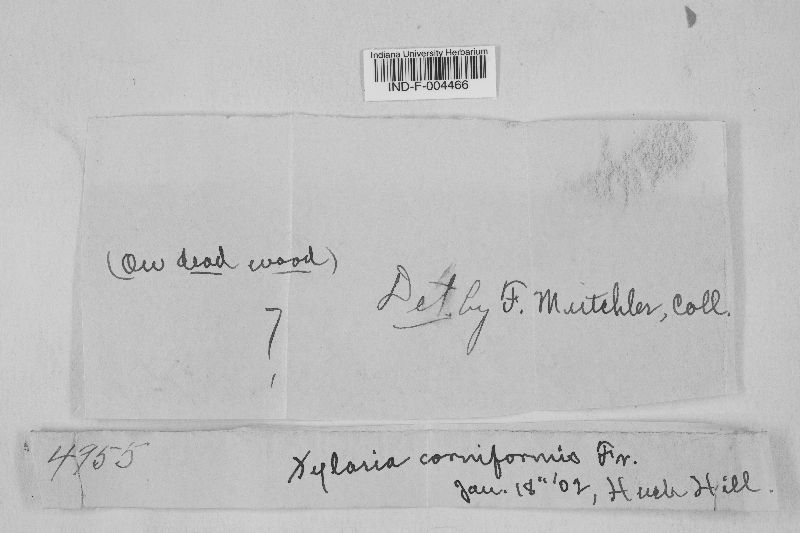 Indiana University Herbarium
IND-F-004466
(On dead wood)
?
Det. by F. Mutchler, Coll.
4955
Xylaria corniformis Fr.
Jan. 18" '02, Hush Hill.